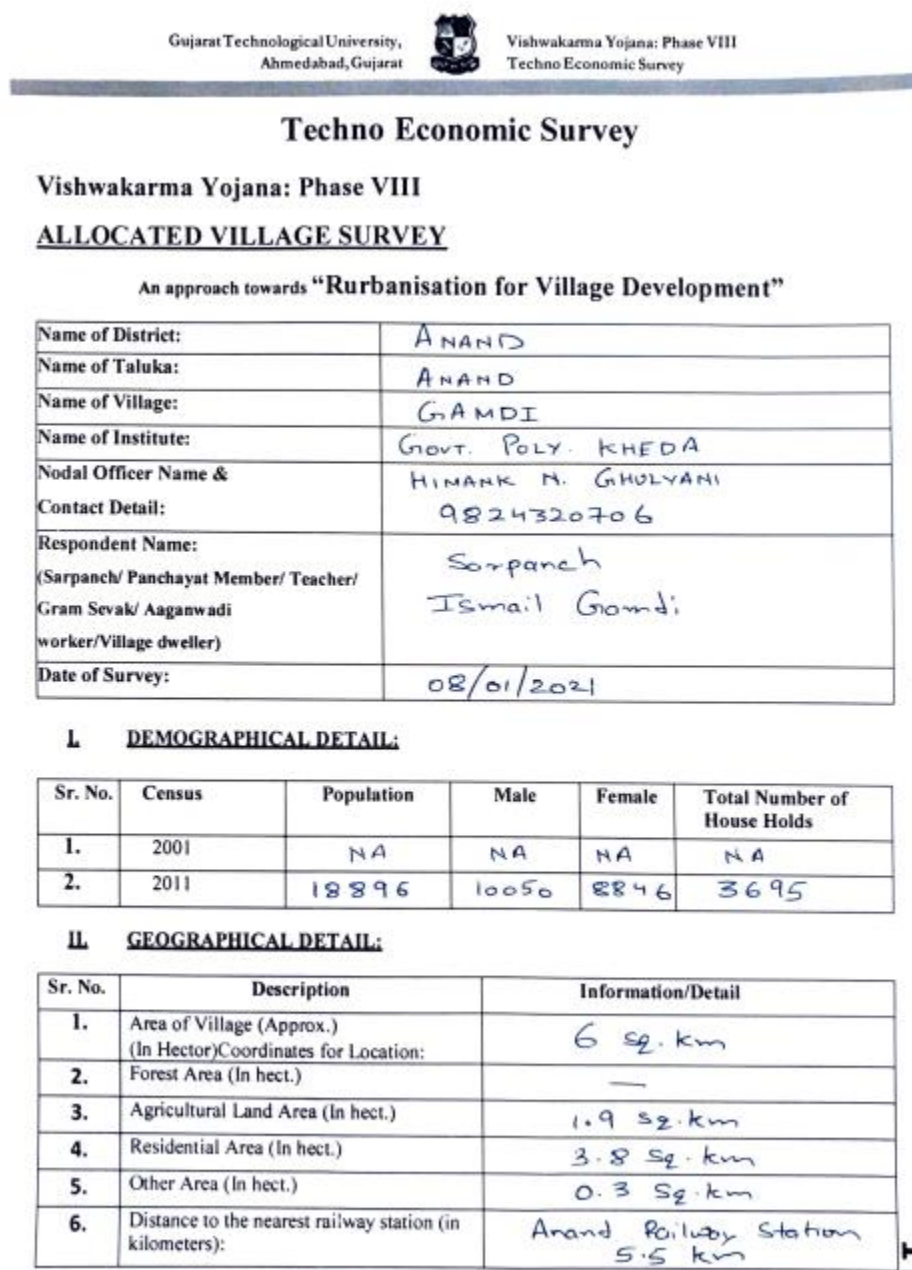 Gujarat Technological University,
Ahmedabad, Gujarat
Vishwakarma Yojana: Phase VIII
Techno Economic Survey
Techno Economic Survey
Vishwakarma Yojana: Phase VIII
ALLOCATED VILLAGE SURVEY
An approach towards “Rurbanisation for Village Development”
Name of District: ANAND
Name of Taluka: ANAND
Name of Village: GAMDI
Name of Institute: GOVT. POLY. KHEDA
Nodal Officer Name & HIMANK N. GHULYANI
Contact Detail: 9824320706
Respondent Name: Sarpanch
(Sarpanch/ Panchayat Member/ Teacher/
Gram Sevak/ Aaganwadi Ismail Gamdi
worker/Village dweller)
Date of Survey: 08/01/2021
I. DEMOGRAPHICAL DETAIL:
Sr. No. Census Population Male Female Total Number of
House Holds
1. 2001 NA NA NA NA
2. 2011 18896 10050 8846 3695
II. GEOGRAPHICAL DETAIL:
Sr. No. Description Information/Detail
1. Area of Village (Approx.)
(In Hector)Coordinates for Location: 6 sq. km
2. Forest Area (In hect.) —
3. Agricultural Land Area (In hect.) 1.9 sq. km
4. Residential Area (In hect.) 3.8 sq. km
5. Other Area (In hect.) 0.3 sq. km
6. Distance to the nearest railway station (in Anand Railway Station
kilometers): 5.5 km